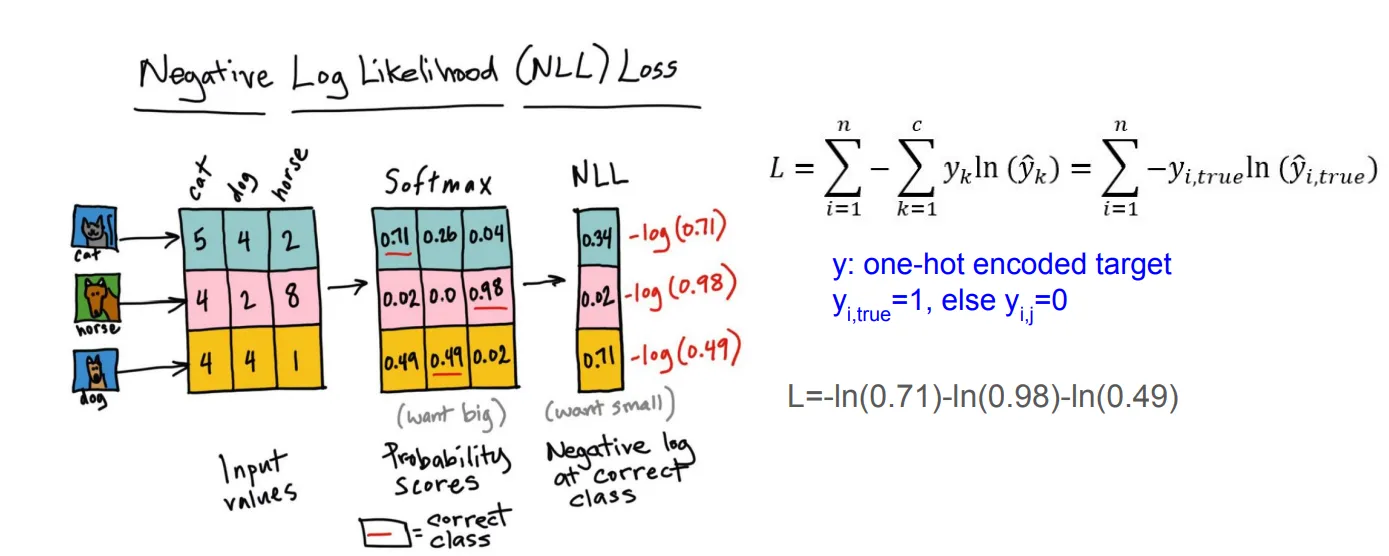 Negative Log Likelihood (NLL) Loss
cat dog horse
Softmax
NLL
cat
5 4 2
0.71 0.26 0.04
0.34
-log(0.71)
horse
4 2 8
0.02 0.0 0.98
0.02
-log(0.98)
dog
4 4 1
0.49 0.49 0.02
0.71
-log(0.49)
(want big)
(want small)
Input
values
Probability
scores
Negative log
at correct
class
= correct
class
L = ∑ⁿᵢ₌₁ − ∑ᶜₖ₌₁ yₖ ln (ŷₖ) = ∑ⁿᵢ₌₁ −y_{i,true} ln (ŷ_{i,true})
y: one-hot encoded target
y_{i,true}=1, else y_{i,j}=0
L=-ln(0.71)-ln(0.98)-ln(0.49)